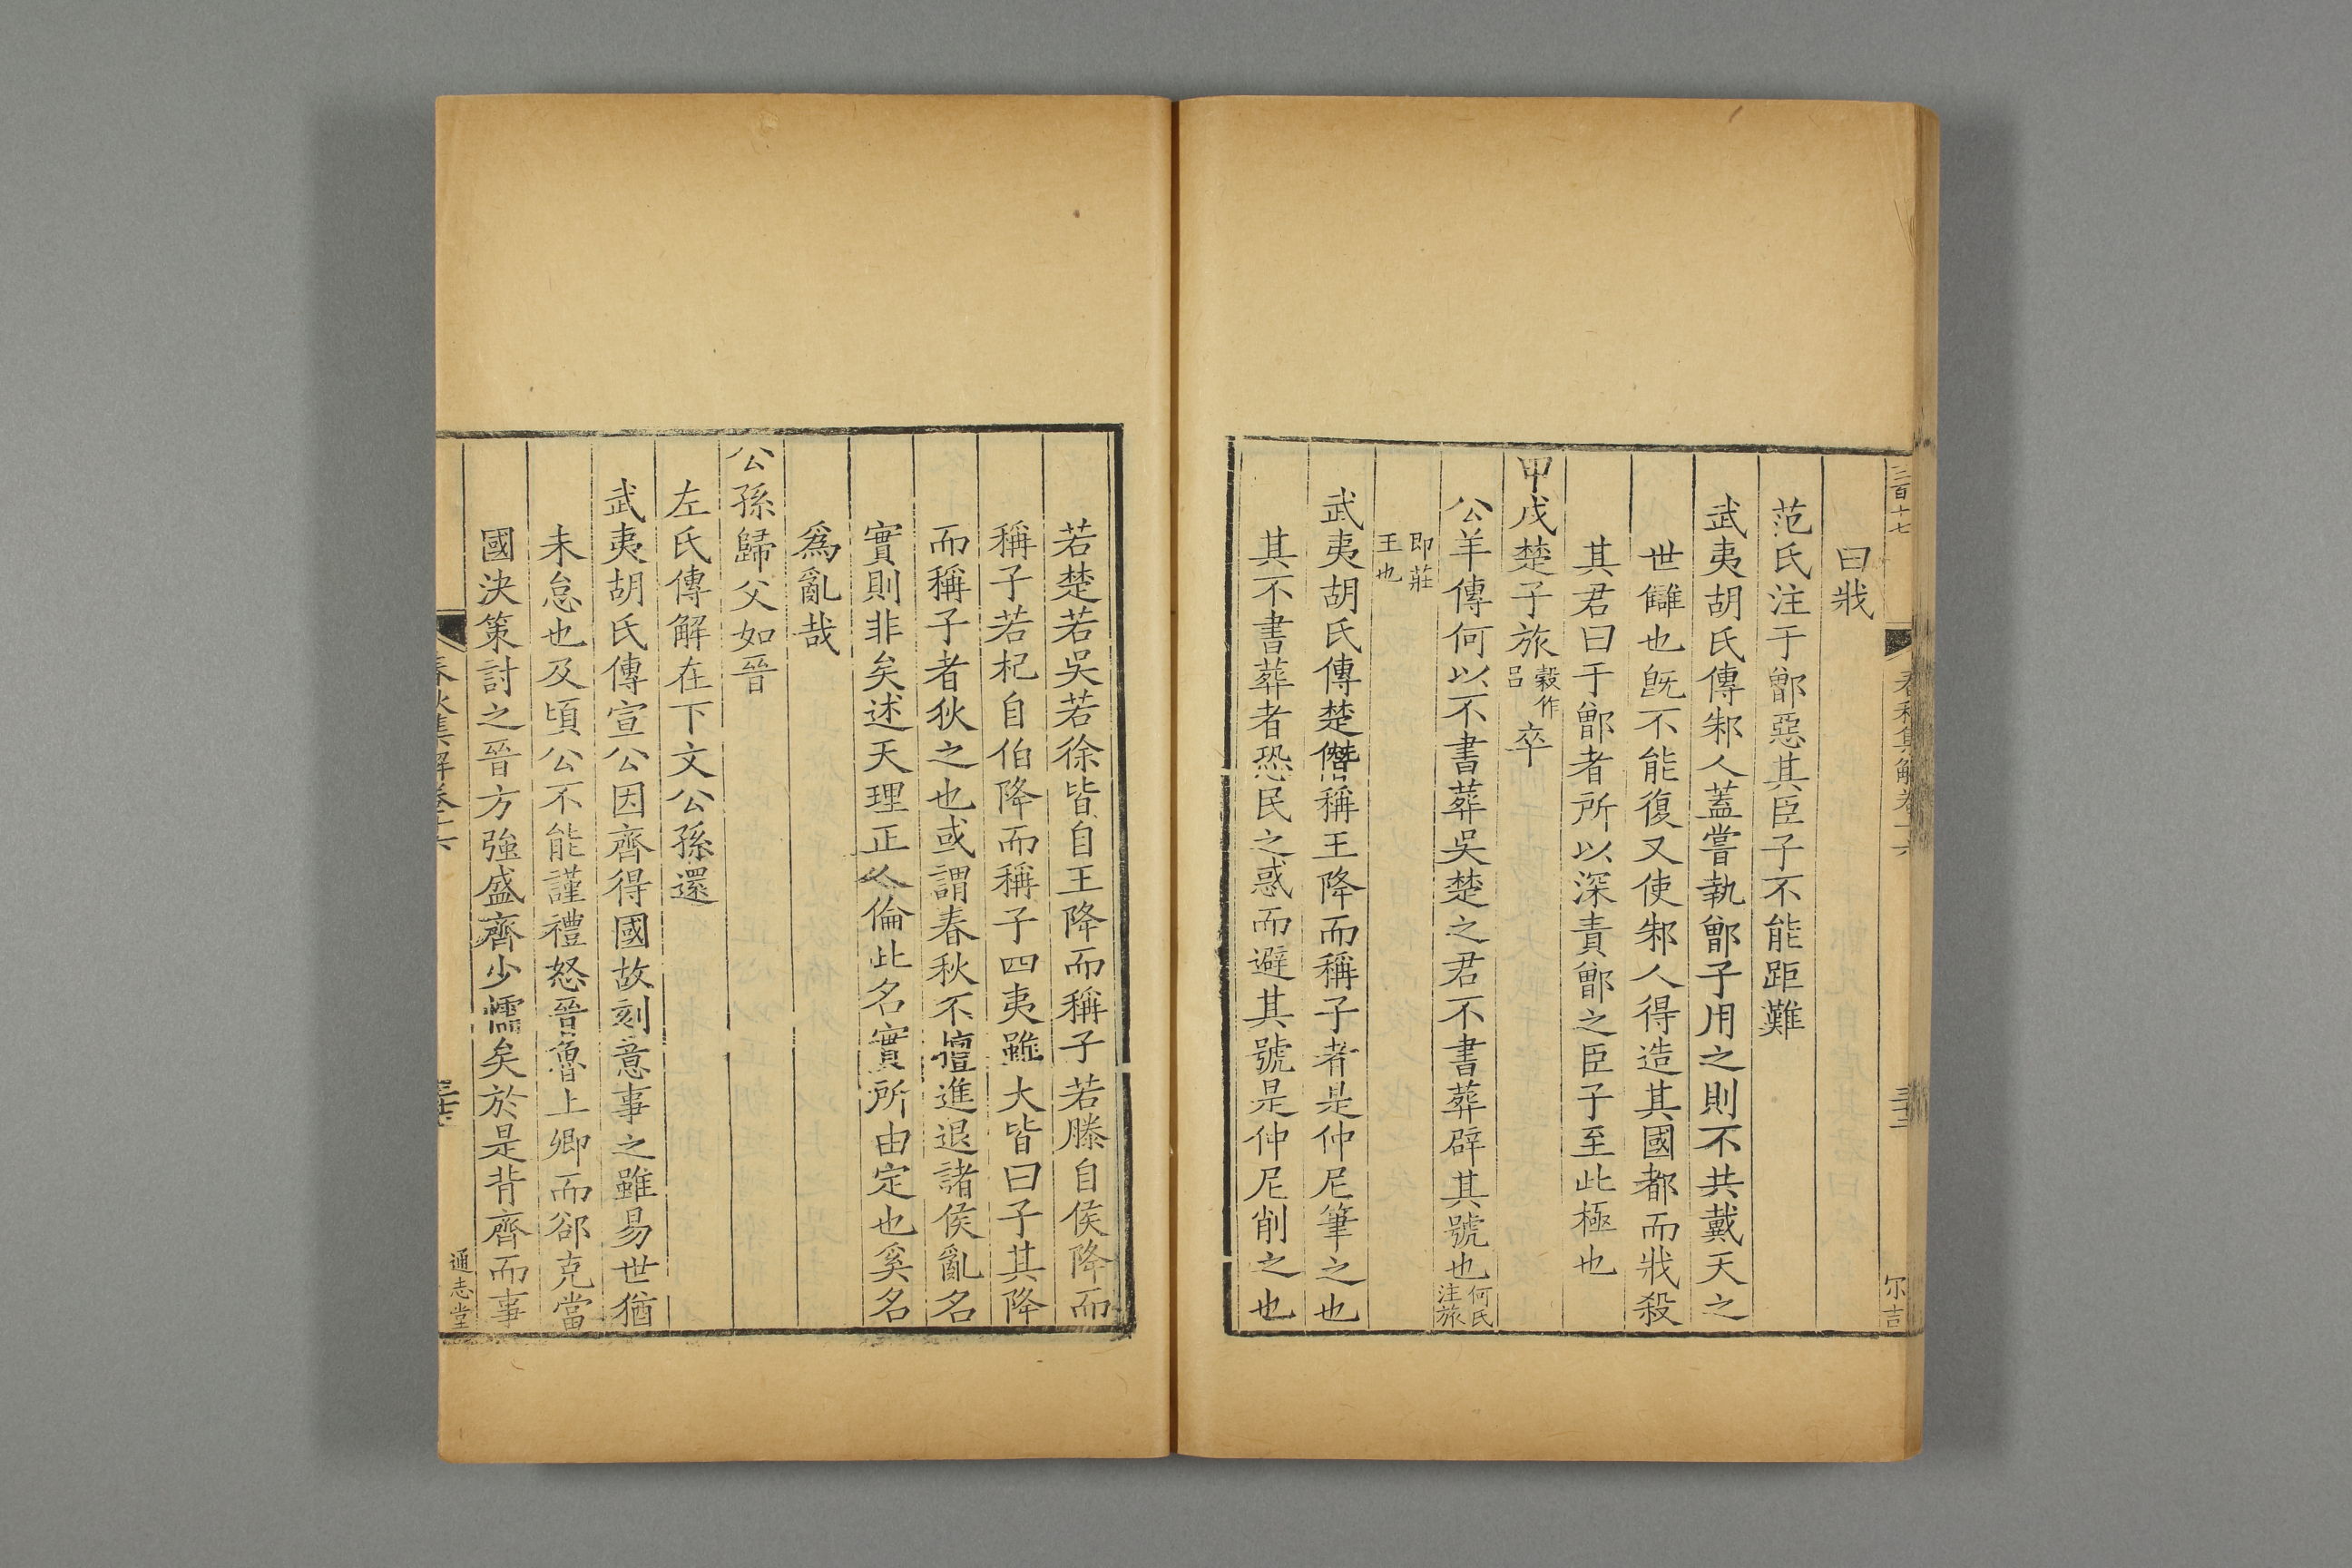 三百十七
春秋集解卷十六
尔吉
曰戕
范氏注于鄫惡其臣子不能距難
武夷胡氏傳邾人蓋嘗執鄫子用之則不共戴天之
世讎也旣不能復又使邾人得造其國都而戕殺
其君曰于鄫者所以深責鄫之臣子至此極也
甲戌楚子旅穀作吕卒
公羊傳何以不書葬吳楚之君不書葬辟其號也何氏注旅
即莊王也
武夷胡氏傳楚僭稱王降而稱子者是仲尼筆之也
其不書葬者恐民之惑而避其號是仲尼削之也
若楚若吳若徐皆自王降而稱子若滕自侯降而
稱子若杞自伯降而稱子四夷雖大皆曰子其降
而稱子者狄之也或謂春秋不擅進退諸侯亂名
實則非矣述天理正人倫此名實所由定也奚名
爲亂哉
公孫歸父如晉
左氏傳解在下文公孫還
武夷胡氏傳宣公因齊得國故刻意事之雖易世猶
未怠也及頃公不能謹禮怒晉魯上卿而郤克當
國決策討之晉方強盛齊少懦矣於是背齊而事
春秋集解卷十六
通志堂